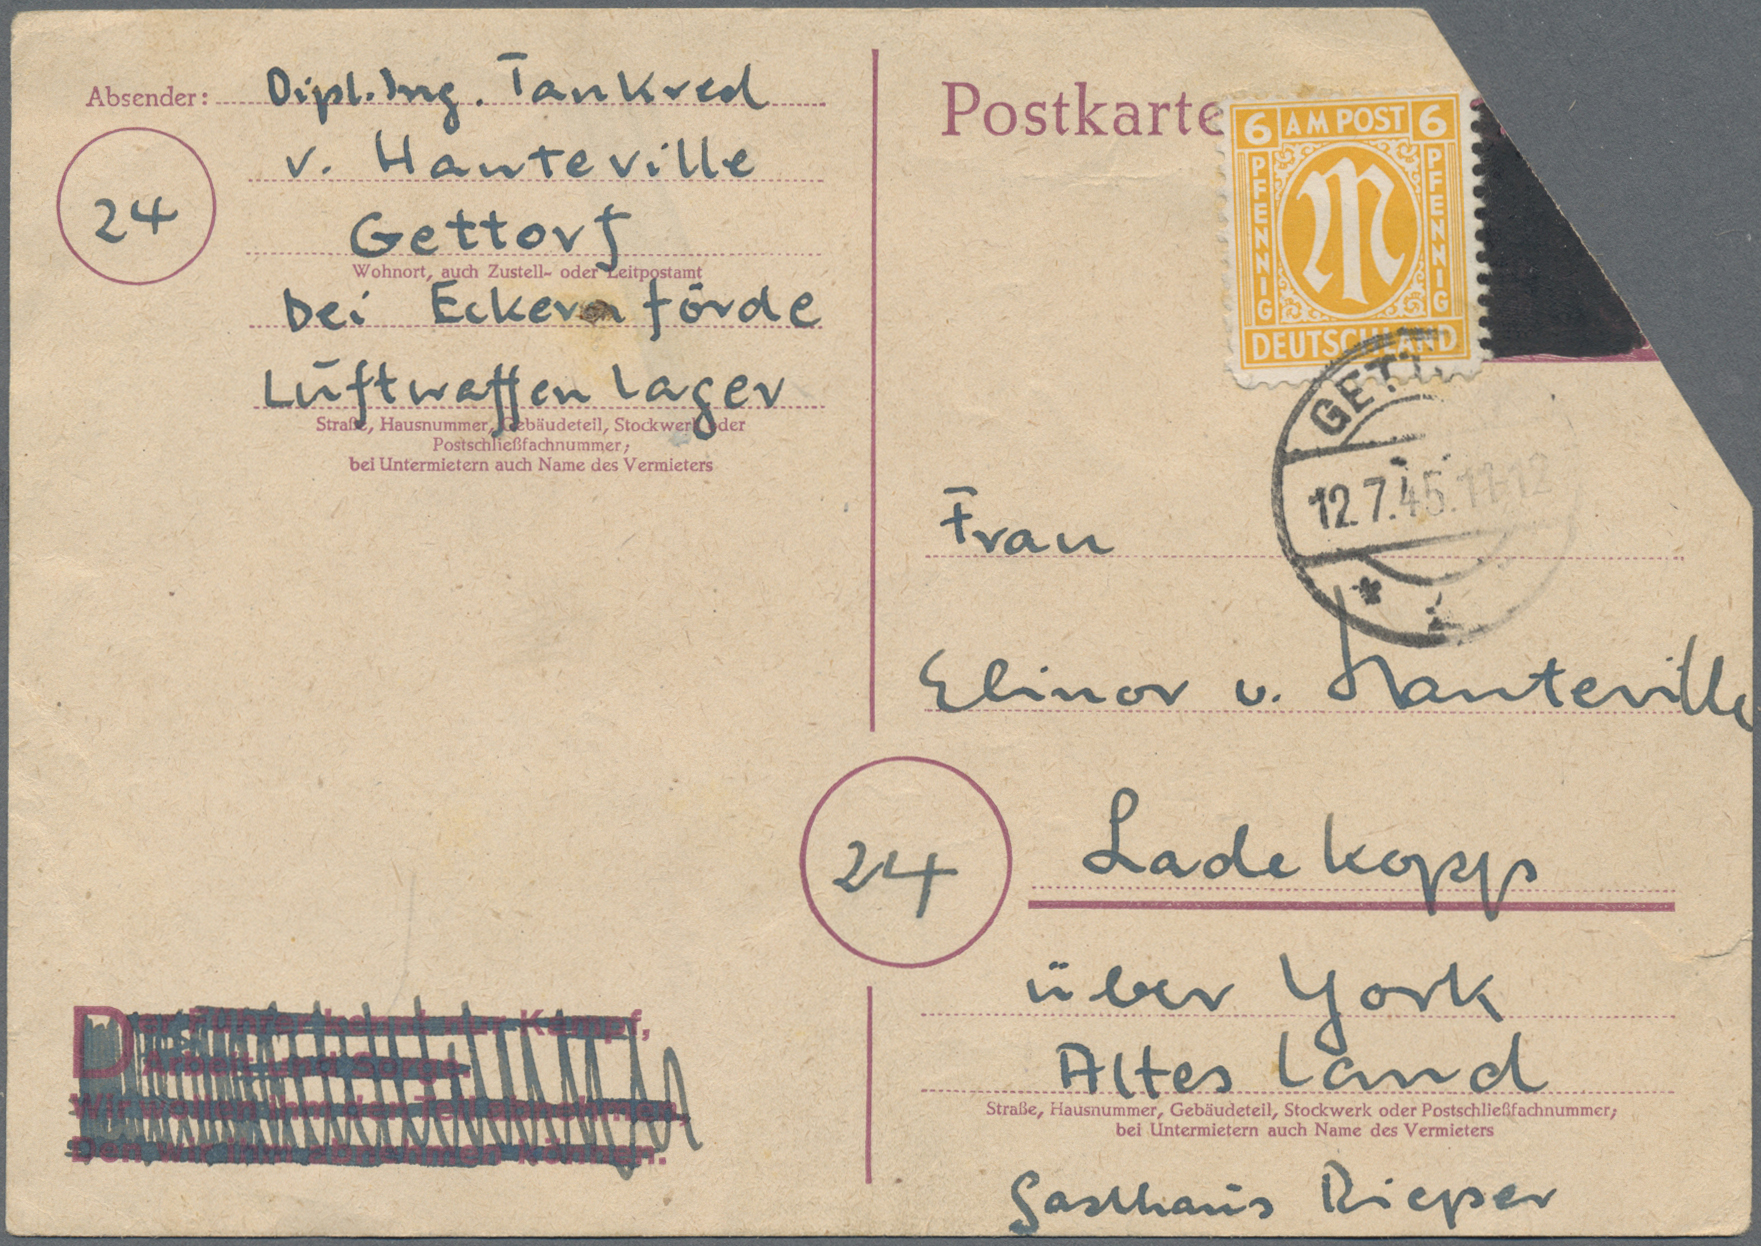 Absender: Dipl.Ing. Tankred
v. Hauteville
24
Gettorf
Wohnort, auch Zustell- oder Leitpostamt
bei Eckernförde
Luftwaffenlager
Straße, Hausnummer, Gebäudeteil, Stockwerk oder
Postschließfachnummer;
bei Untermietern auch Name des Vermieters
Postkarte
6 AM POST 6
PFENNIG
PFENNIG
M
DEUTSCHLAND
GETT
12.7.45.11-12
Frau
Elinor v. Hauteville
24
Ladekopp
über York
Altes Land
Straße, Hausnummer, Gebäudeteil, Stockwerk oder Postschließfachnummer;
bei Untermietern auch Name des Vermieters
Gasthaus Rieper
Der Führer kennt nur Kampf,
Arbeit und Sorge.
Wir wollen ihm den Teil abnehmen,
Den wir ihm abnehmen können.